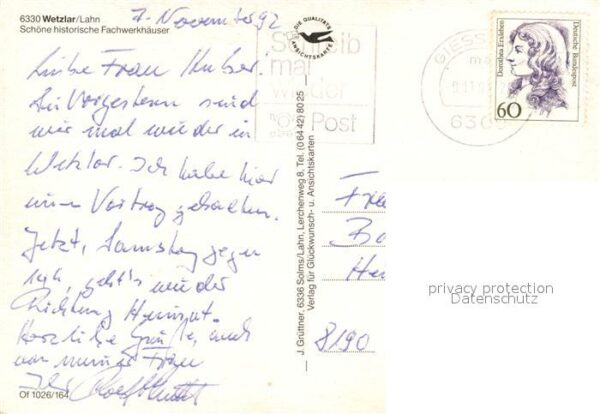 6330 Wetzlar/Lahn
Schöne historische Fachwerkhäuser
7. November 92
Liebe Frau Huber!
Vorgestern sind
wir mal wieder in
Wetzlar. Ich habe hier
einen Vortrag gehalten.
Jetzt, Samstag gegen
geht's wieder
Richtung Heimat.
Herzliche Grüße, auch
von meiner Frau
Ihr
Of 1026/164
DIE QUALITÄTS
ANSICHTSKARTE
Schreib
mal
wieder
Post
J. Grüttner, 6336 Solms/Lahn, Lerchenweg 8, Tel. (0 64 42) 80 25
Verlag für Glückwunsch- u. Ansichtskarten
GIESS
630
Dorothea Erxleben
Deutsche Bundespost
60
Fra
Ba
He
8190
privacy protection
Datenschutz